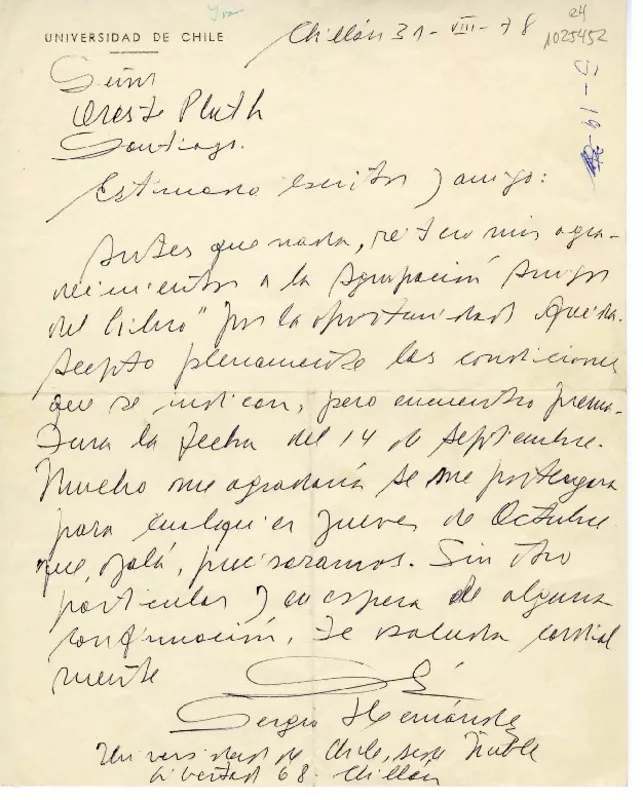 UNIVERSIDAD DE CHILE
Chillán 31-VIII-78
24
1025452
Señor
Oreste Plath
Santiago.
Estimado escritor y amigo:
Antes que nada, reitero mis agra-
decimientos a la Agrupación Amigos
del Libro" por la oportunidad
Acepto plenamente las condiciones
que se indican, pero encuentro prema-
tura la fecha del 14 de Septiembre.
Mucho me agradaría se me postergara
para cualquier jueves de Octubre
que, ojalá, precisáramos. Sin otro
particular y en espera de alguna
confirmación, te saluda cordial
mente
Sergio Hernández
Universidad de Chile, sede Ñuble
Libertad 68. Chillán